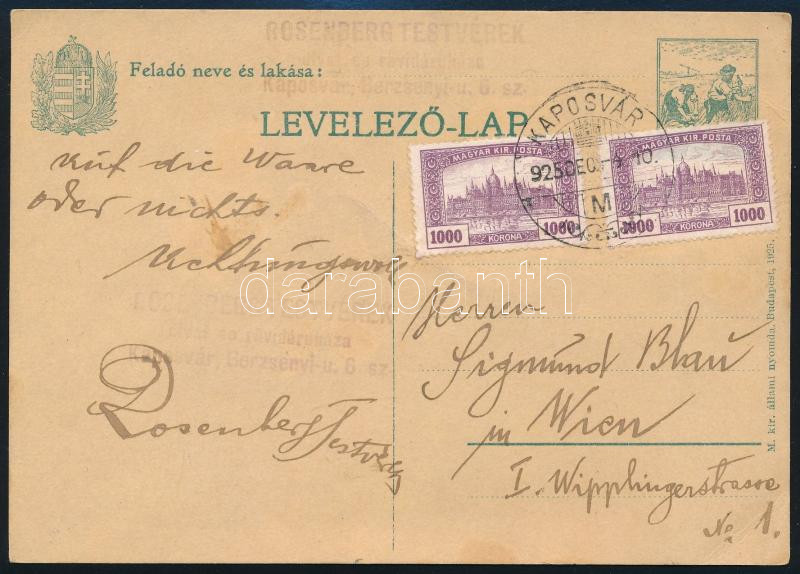 ROSENBERG TESTVÉREK
és rövidáruháza
Kaposvár, Berzsenyi-u. 6. sz.
Feladó neve és lakása:
LEVELEZŐ-LAP
KAPOSVÁR
925 DEC
10
M
MAGYAR KIR. POSTA
1000 1000
KORONA
MAGYAR KIR. POSTA
1000 1000
KORONA
auf die Waare
oder nichts.
Achtungsvoll
és rövidáruháza
Kaposvár, Berzsenyi-u. 6 sz.
Rosenberg Testvérek
darabanth
Herren
Sigmund Blau
in Wien
I. Wipplingerstrasse
No 1.
M. kir. állami nyomda. Budapest, 1925.